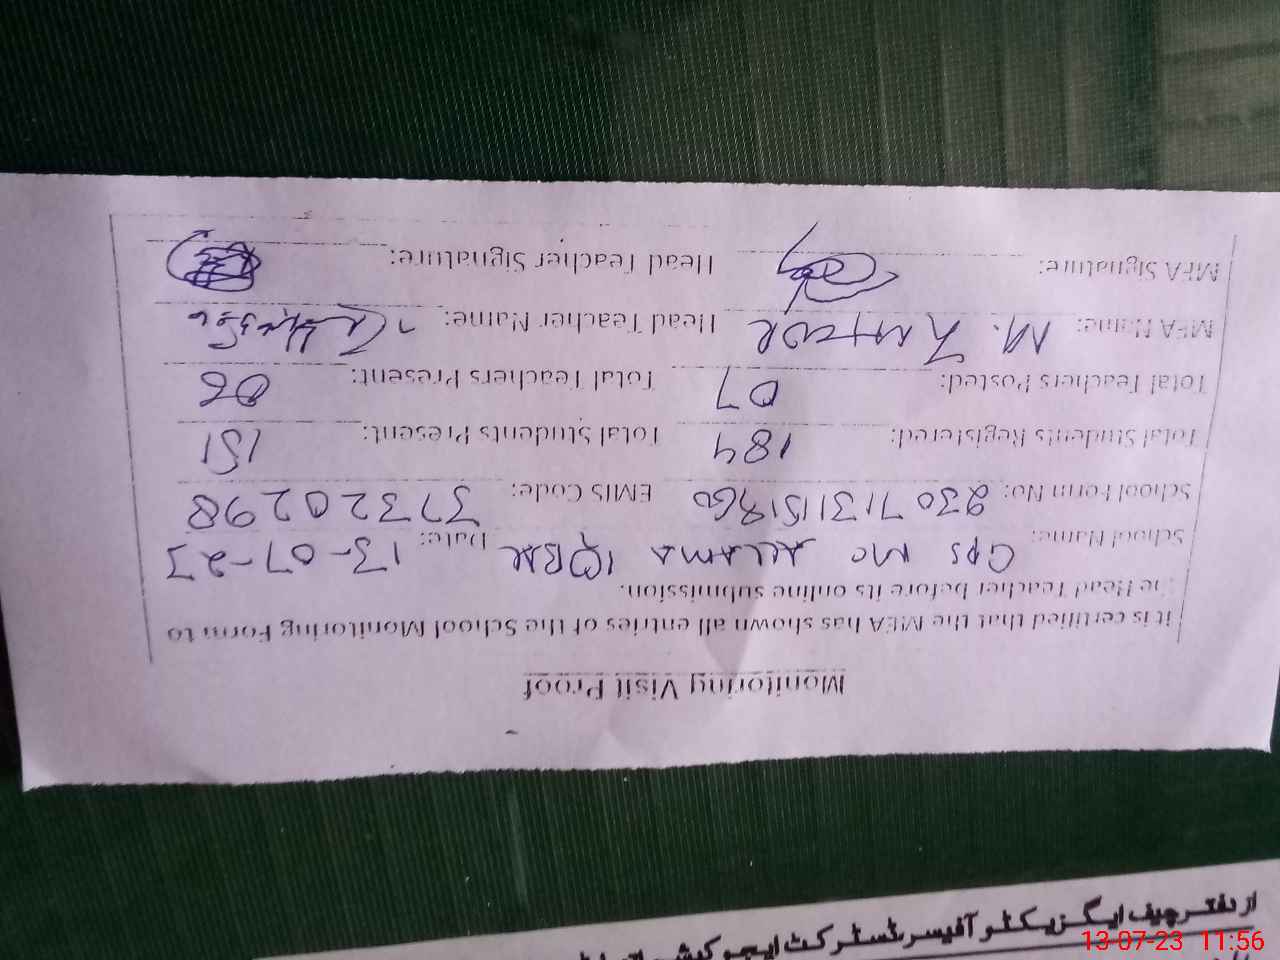 Monitoring Visit Proof
it is certified that the MEA has shown all entries of the School Monitoring Form to
the Head Teacher before its online submission.
School Name: GPS MC ALLAMA IQBAL Date: 13-07-23
School Form No: EMIS Code: 37320298
Total Students Registered: 184 Total Students Present: 151
Total Teachers Posted: 07 Total Teachers Present: 06
MEA Name: M. Head Teacher Name:
MEA Signature: Head Teacher Signature:
از دفتر چیف ایگزیکٹو آفیسر ڈسٹرکٹ ایجوکیشن
13-07-23 11:56